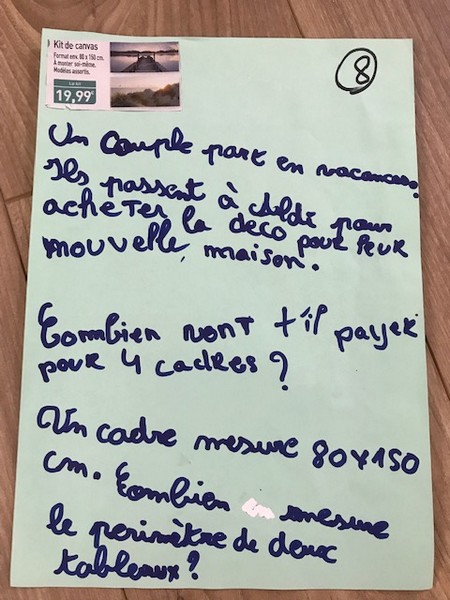 Kit de canvas
Format env. 80 x 150 cm.
À monter soi-même.
Modèles assortis.
Le kit
19,99€
8
Un couple part en vacances.
Ils passent à Aldi pour
acheter la deco pour leur
nouvelle maison.
Combien vont t'il payer
pour 4 cadres ?
Un cadre mesure 80x150
cm. Combien mesure
le perimètre de deux
tableaux ?